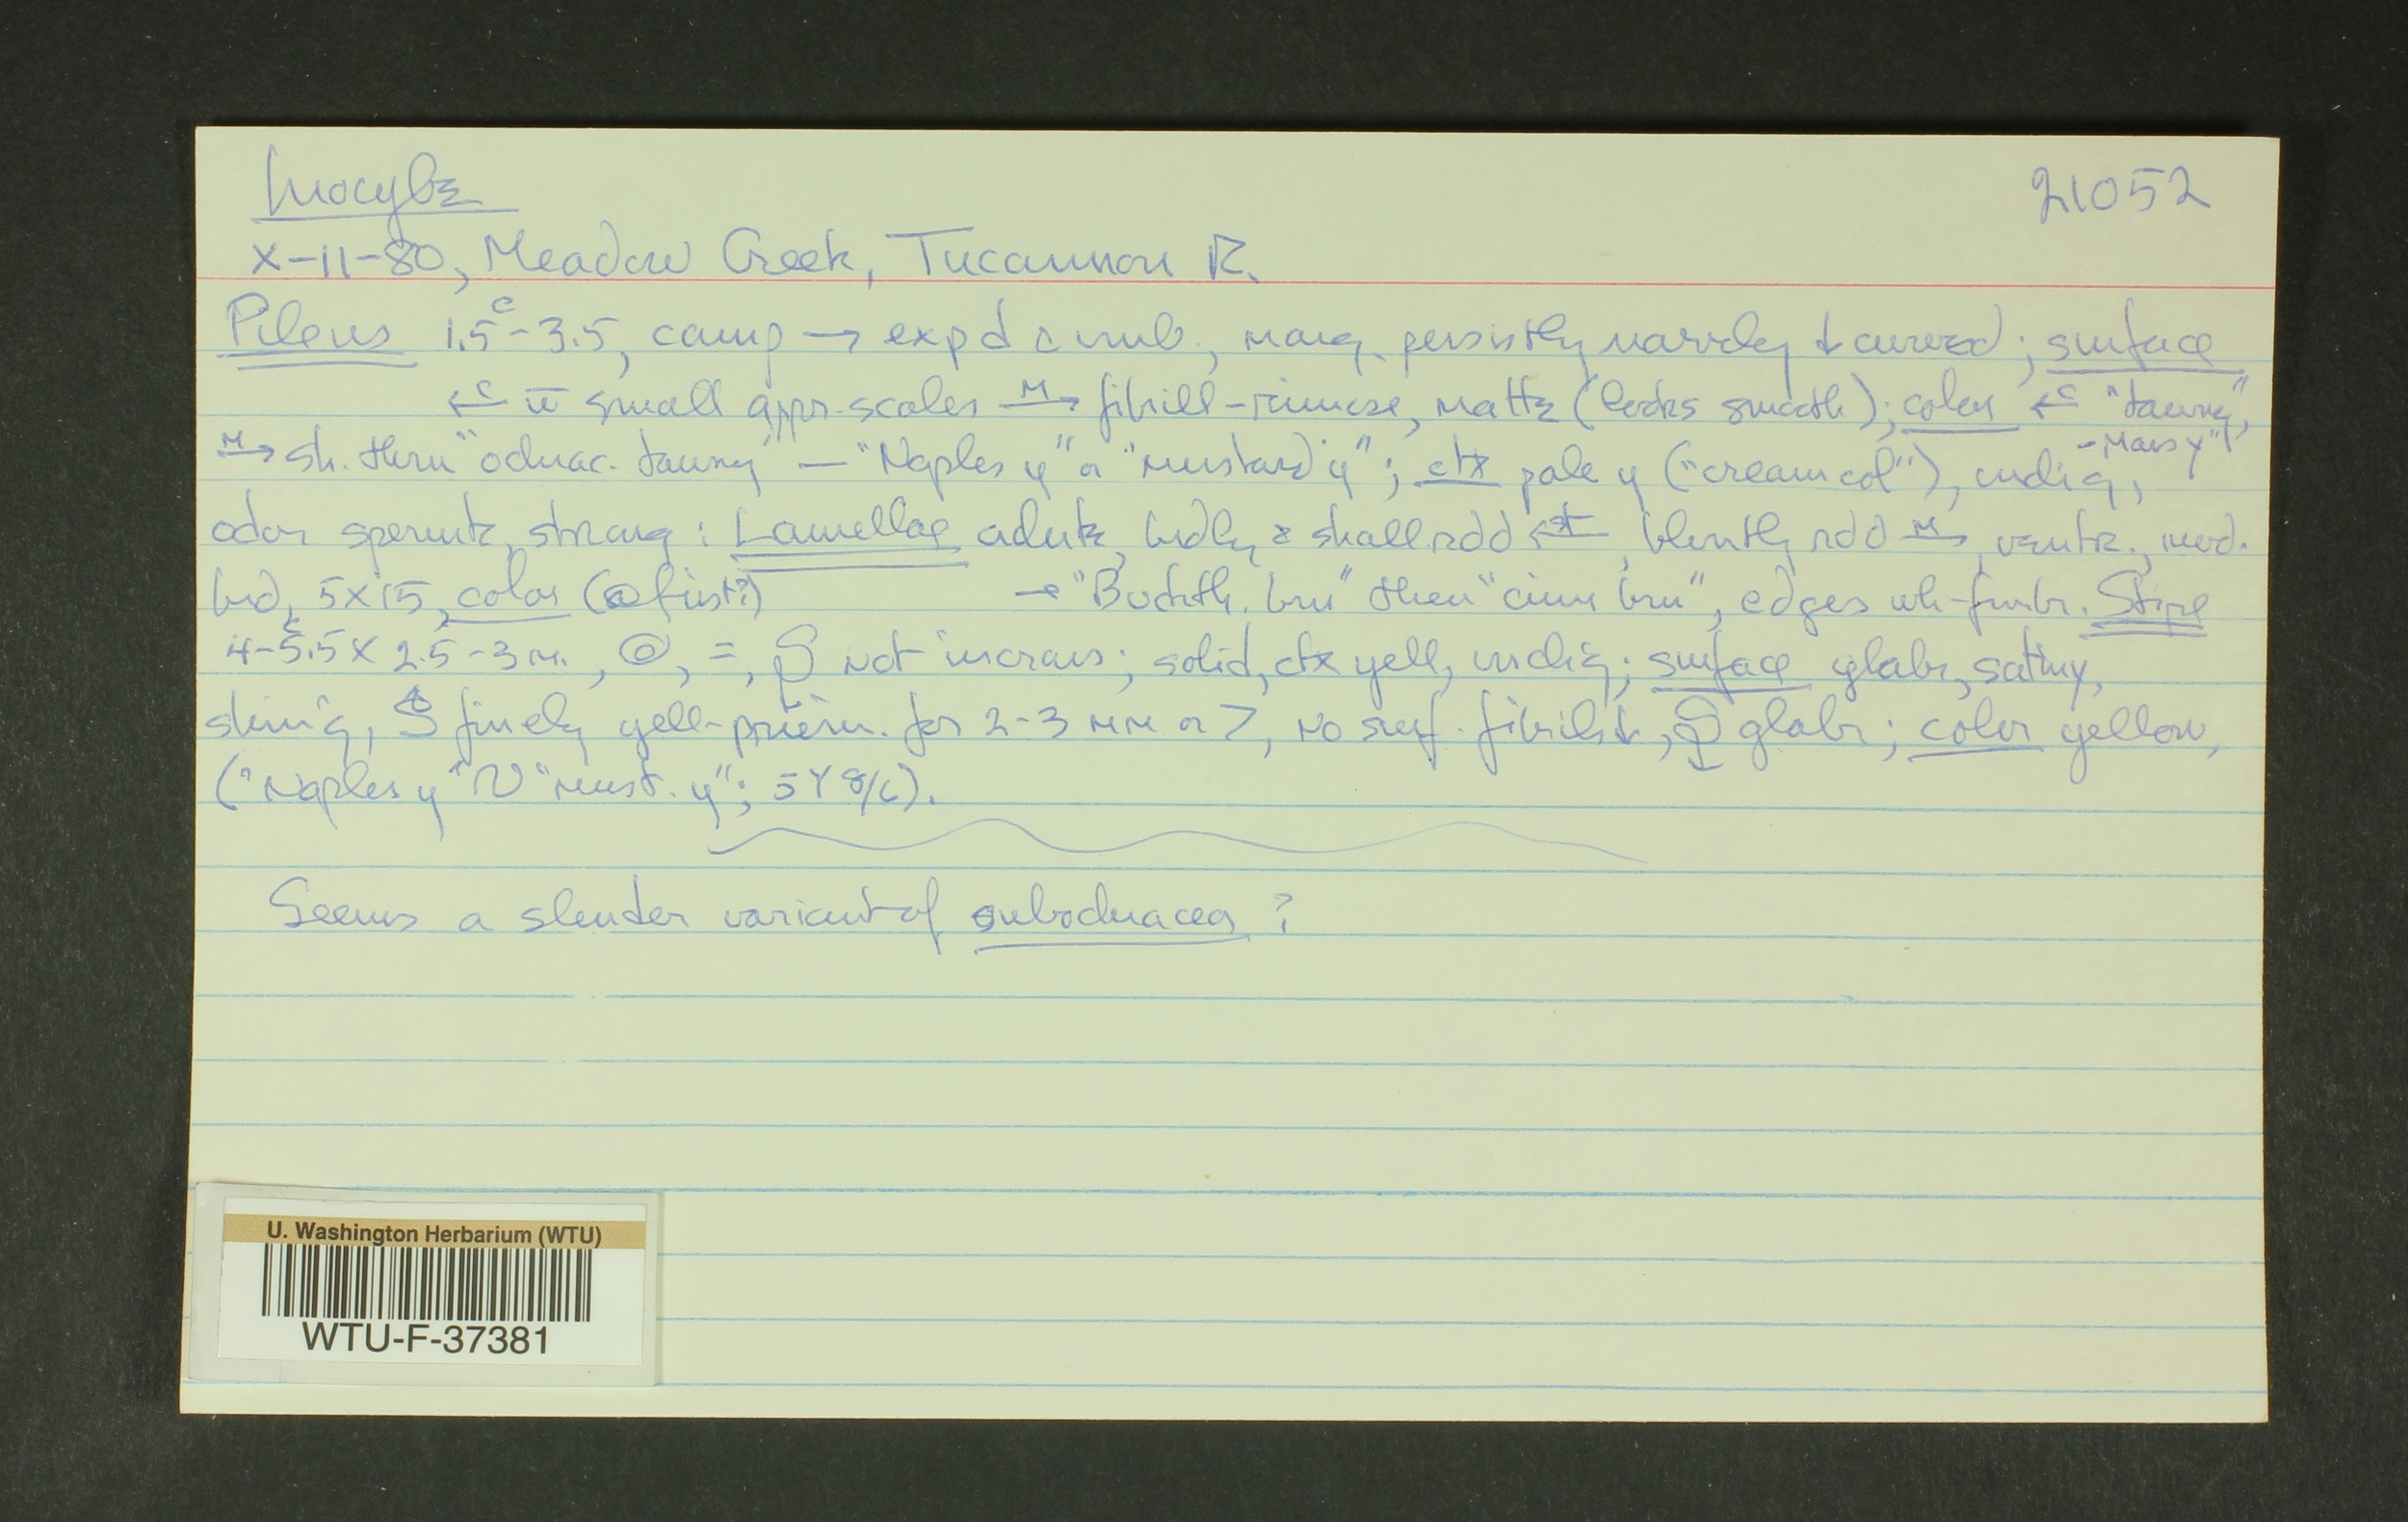 Inocybe 21052
X-11-80, Meadow Creek, Tucannon R.
Pileus 1.5-3.5 c, camp → exp'd c umb., marg. persist'ly narr'ly ↓ curved; surface
←c w small appr. scales M→ fibrill-rimose, matte (looks smooth); color ←c "tawny",
M→ sh. thru "ochrac. tawny" — "Naples y" or "mustard y"; ctx pale y ("cream col"), indig, - Mars y"
odor spermtc, strong: Lamellae adntc, bdly & shall. rdd ←st, bluntly rdd M→, ventr., mod.
brd, 5x15, color (@ first?) → "Buckth. brn" then "cinn brn", edges wh-fimbr. Stipe
4-5.5 c x 2.5-3 m., =, not incrass; solid, ctx yell, indig; surface glabr, satiny,
shin'g, finely yell-pruin. for 2-3 mm or >, no surf. fibrils ↓, glabr; color yellow,
("Naples y" "must. y"; 5Y 8/6).
Seems a slender variant of subochracea ?
U. Washington Herbarium (WTU)
WTU-F-37381